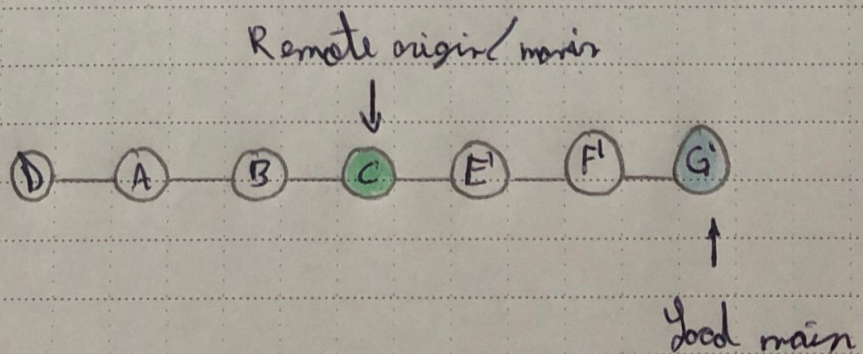 Remote origin/main
D A B C E' F' G'
Local main